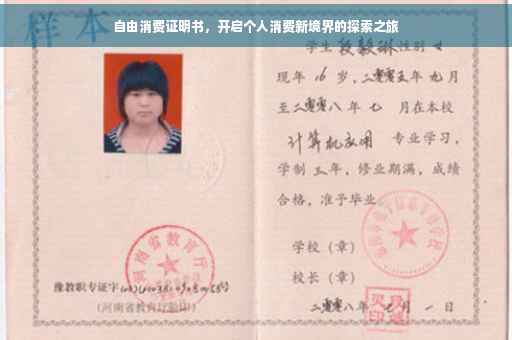 自由消费证明书，开启个人消费新境界的探索之旅
样本
学生段毅琳性别 女
现年 16 岁，二零零五年 九 月
至二零零八 年 七 月在本校
计算机应用 专业学习，
学制 三 年，修业期满，成绩
合格，准予毕业
学校（章）
校长（章）
二零零八年 月 一 日
河南省教育厅
豫教职专证字
(河南省教育厅验印)